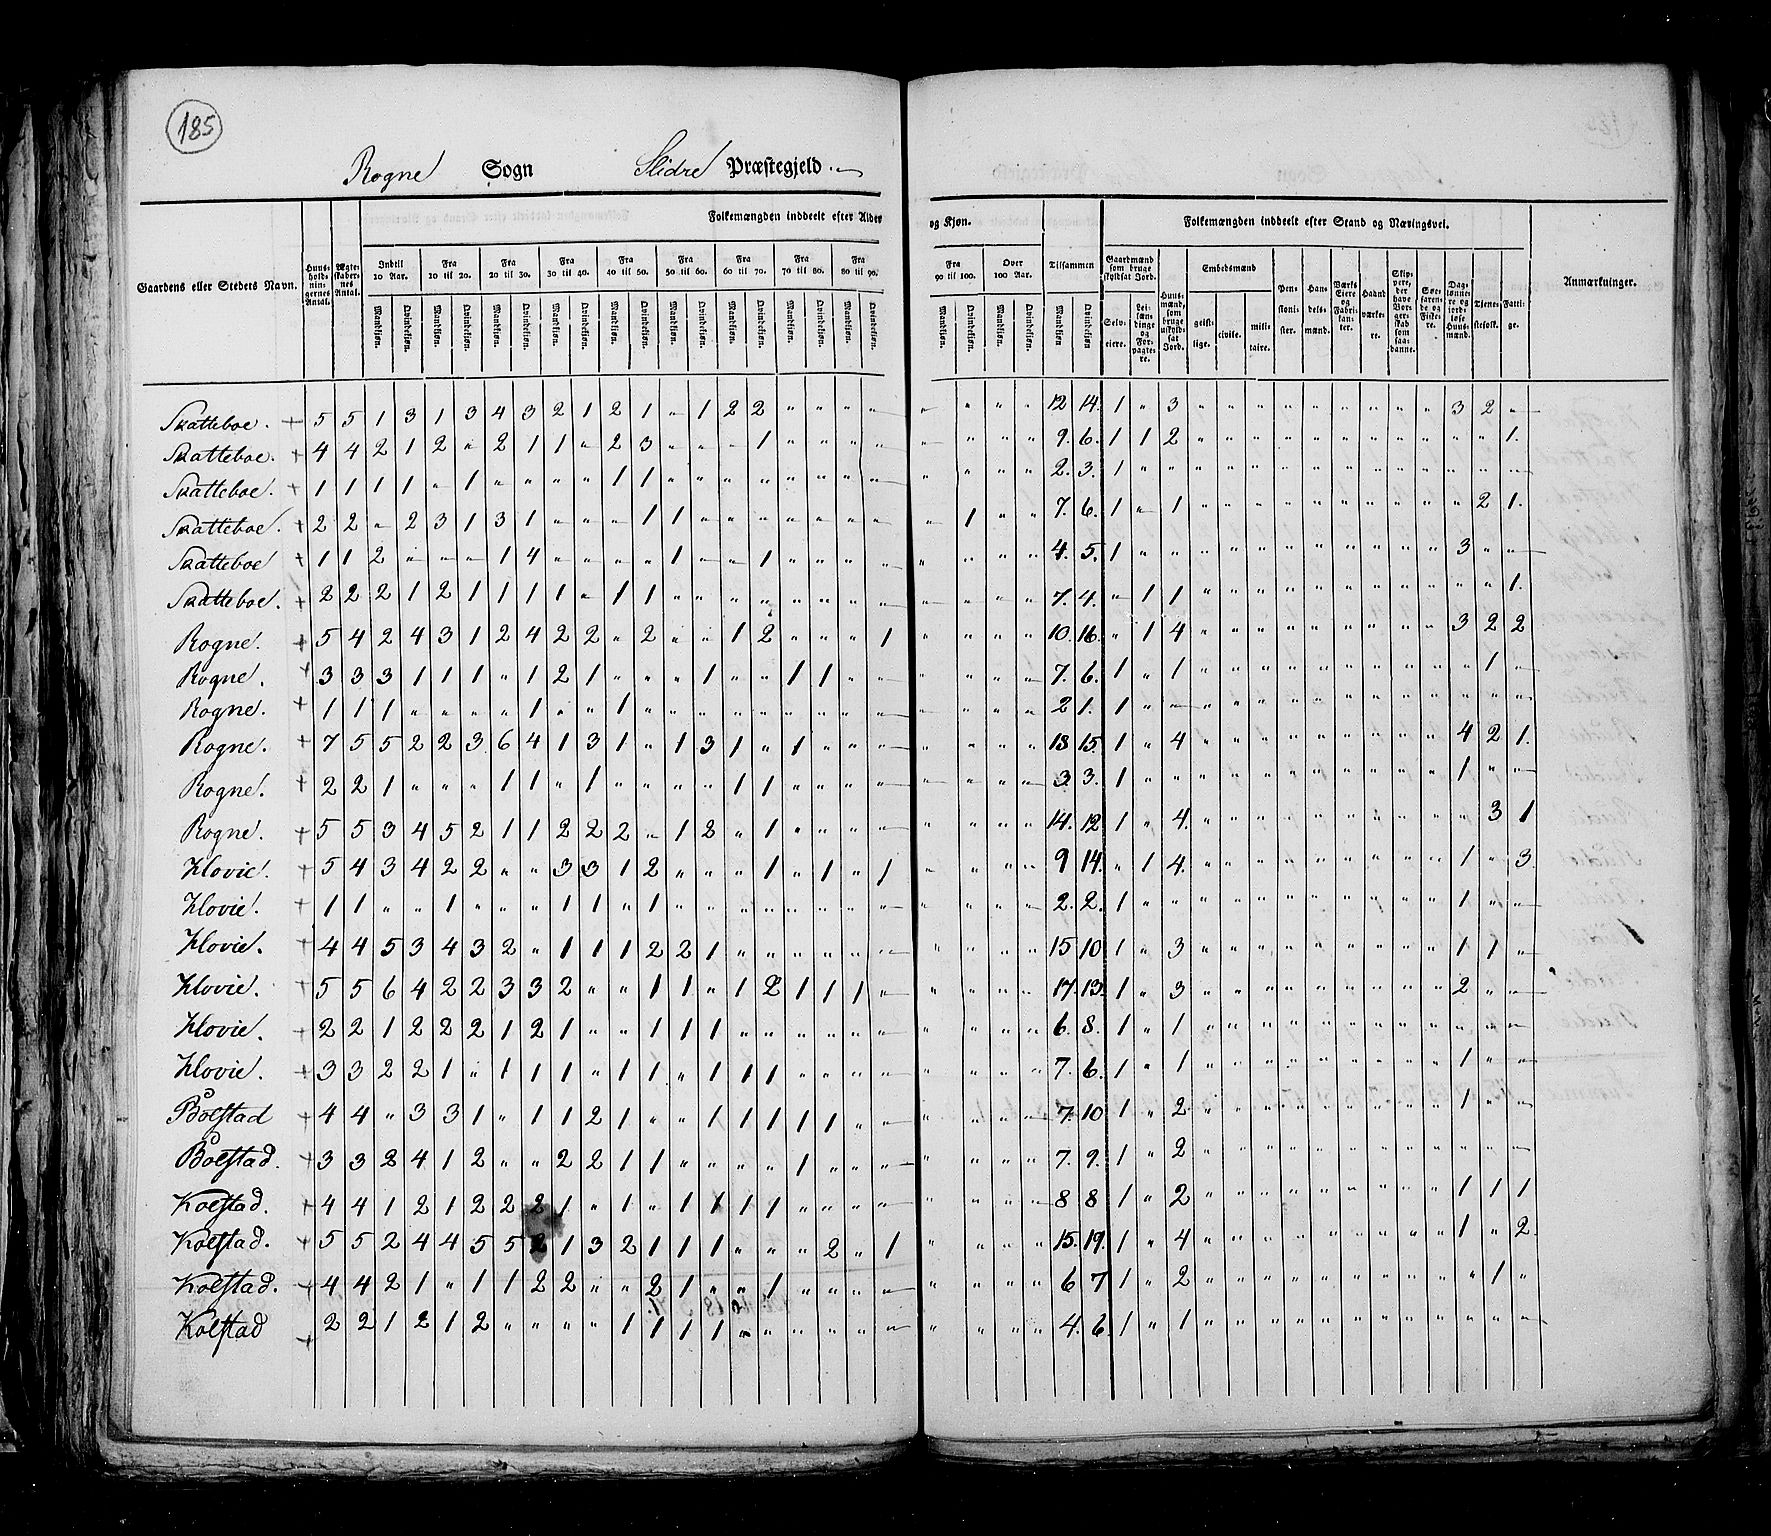 185
Rogne Sogn Slidre Præstegjeld.
Gaardens eller Stedets Navn.
Huusholdningernes Antal.
Ægteskabernes Antal.
Folkemængden inddeelt efter Alder og Kjøn.
Indtil 10 Aar. Fra 10 til 20. Fra 20 til 30. Fra 30 til 40. Fra 40 til 50. Fra 50 til 60. Fra 60 til 70. Fra 70 til 80. Fra 80 til 90. Fra 90 til 100. Over 100 Aar.
Mandkjøn. Qvindekjøn.
Tilsammen
Mandkjøn Qvindekjøn
Folkemængden inddeelt efter Stand og Næringsvei.
Gaardmænd som bruge skyldsat Jord.
Selveiere. Leilændinge og Forpagtere.
Huusmænd, som bruge uskyldsat Jord.
Embedsmænd
geistlige. civile. militaire.
Pensionister.
Handelsmænd.
Værks Eiere og Fabrikanter.
Haandværkere.
Skippere, der have Borgerskab som saadanne.
Søefarende og Fiskere.
Daglønnere og jordløse Huusmænd.
Tjenestefolk.
Fattige.
Anmærkninger.
Skatteboe. + 5 5 1 3 1 3 4 3 2 1 2 1 " 1 2 2 " " " " " " " " 12 14. 1 " 3 " " " " " " " " " 3 2 "
Skatteboe. + 4 4 2 1 2 " 2 1 1 " 2 3 " " " 1 " " " " " " " " 9. 6. 1 1 2 " " " " " " " " " " " 1.
Skatteboe. + 1 1 1 1 " 1 " " " " 1 1 " " " " " " " " " " " " 2. 3. 1 " " " " " " " " " " " " " "
Skatteboe. + 2 2 " 2 3 1 3 1 " " " 1 1 " " " " " " " " 1 " " 7. 6. 1 " 1 " " " " " " " " " " 2 1.
Skatteboe + 1 1 2 " " " 1 4 " " " " 1 " " 1 " " " " " " " " 4. 5. 1 " " " " " " " " " " " 3 " "
Skatteboe. + 2 2 2 1 2 1 1 1 1 " 1 1 " " " " " " " " " " " " 7. 4. " 1 1 " " " " " " " " " " " 1.
Rogne. + 5 4 2 4 3 1 2 4 2 2 " 2 " " 1 2 " " " 1 " " " " 10. 16. " 1 4 " " " " " " " " " 3 2 2
Rogne. + 3 3 3 1 1 1 " 1 2 1 " " " 1 " " 1 1 " " " " " " 7. 6. 1 " 1 " " " " " " " " " " 1 "
Rogne. + 1 1 1 " " " " 1 " " 1 " " " " " " " " " " " " " 2 1. 1 " " " " " " " " " " " " " "
Rogne. + 7 5 5 2 2 3 6 4 1 3 1 " 1 3 1 " 1 " " " " " " " 18 15. 1 " 4 " " " " " " " " " 4 2 1.
Rogne. + 2 2 1 " " " 1 1 " 1 " " " " 1 1 " " " " " " " " 3 3. 1 " " " " " " " " " " " 1 " "
Rogne. + 5 5 3 4 5 2 1 1 2 2 2 " 1 2 " 1 " " " " " " " " 14. 12 1 " 4. " " " " " " " " " " 3 1
Klovie. + 5 4 3 4 2 2 " " 3 3 1 2 " " " 1 " 1 " 1 " " " " 9 14. " 1 4. " " " " " " " " " 1 " 3
Klovie. + 1 1 " " 1 " " " 1 1 " 1 " " " " " " " " " " " " 2. 2. 1 " " " " " " " " " " " 1 " "
Klovie. + 4 4 5 3 4 3 2 " 1 1 1 2 2 1 " " " " " " " " " " 15 10 1 " 3 " " " " " " " " " 1 1 "
Klovie. + 5 5 6 4 2 2 3 3 2 " " 1 1 " 1 2 1 1 1 " " " " " 17. 13. 1 " 3 " " " " " " " " " 2 " "
Klovie. + 2 2 1 2 2 2 1 2 1 " " 1 1 1 " " " " " " " " " " 6. 8. 1 " 1 " " " " " " " " " " " "
Klovie. + 3 3 2 2 1 " 1 1 1 " 1 1 " 1 1 1 " " " " " " " " 7. 6. 1 " 1 " " " " " " " " " 1 " "
Bolstad + 4 4 " 3 3 1 " 1 1 2 1 " " 1 1 1 1 1 " " " " " " 7. 10 1 " 2 " " " " " " " " " 1 " "
Bolstad. + 3 3 2 4 1 2 " " 2 2 1 1 " " " " 1 " " " " " " " 7. 9. 1 " 2 " " " " " " " " " " " "
Kolstad. + 4 4 1 2 1 2 2 2 1 " 1 " 1 1 1 1 " " " " " " " " 8 8 1 " 2 " " " " " " " " " 1 1 1
Kolstad. + 5 5 2 4 4 5 5 2 1 3 2 1 1 1 " " " 2 " 1 " " " " 15. 19. 1 " 4 " " " " " " " " " 1 " 2
Kolstad. + 4 4 2 1 " 1 1 2 2 " " 2 1 " " 1 " " " " " " " " 6 7 1 " 2 " " " " " " " " " " 1 "
Kolstad + 2 2 1 2 1 2 " " " " 1 1 1 1 " " " " " " " " " " 4. 6. 1 " 1 " " " " " " " " " " " "